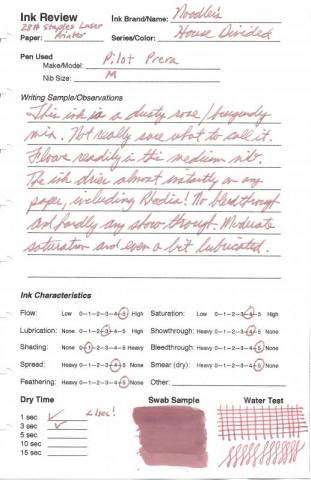 Ink Review
Ink Brand/Name: Noodler's
28# Staples Laser
Paper: Printer
Series/Color: House Divided
Pen Used
Make/Model: Pilot Prera
Nib Size: M
Writing Sample/Observations
This ink is a dusty rose/burgundy
mix. Not really sure what to call it.
Flows readily in this medium nib.
The ink dries almost instantly on any
paper, including Rhodia! No bleedthrough
and hardly any show-through. Moderate
saturation and even a bit lubricated.
Ink Characteristics
Flow: Low 0–1–2–3–4–5 High
Saturation: Low 0–1–2–3–4–5 High
Lubrication: None 0–1–2–3–4–5 High
Showthrough: Heavy 0–1–2–3–4–5 None
Shading: None 0–1–2–3–4–5 Heavy
Bleedthrough: Heavy 0–1–2–3–4–5 None
Spread: Heavy 0–1–2–3–4–5 None
Smear (dry): Heavy 0–1–2–3–4–5 None
Feathering: Heavy 0–1–2–3–4–5 None
Other:
Dry Time
Swab Sample
Water Test
1 sec ✓ <1sec!
3 sec ✓
5 sec
10 sec
15 sec